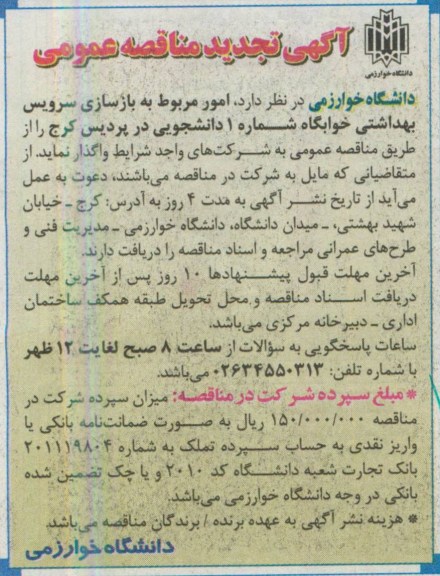 آگهی تجدید مناقصه عمومی
دانشگاه خوارزمی
دانشگاه خوارزمی در نظر دارد، امور مربوط به بازسازی سرویس
بهداشتی خوابگاه شماره ۱ دانشجویی در پردیس کرج را از
طریق مناقصه عمومی به شرکت‌های واجد شرایط واگذار نماید. از
متقاضیانی که مایل به شرکت در مناقصه می‌باشند، دعوت به عمل
می‌آید از تاریخ نشر آگهی به مدت ۴ روز به آدرس: کرج ـ خیابان
شهید بهشتی، ـ میدان دانشگاه، دانشگاه خوارزمی ـ مدیریت فنی و
طرح‌های عمرانی مراجعه و اسناد مناقصه را دریافت دارند.
آخرین مهلت قبول پیشنهادها ۱۰ روز پس از آخرین مهلت
دریافت اسناد مناقصه و محل تحویل طبقه همکف ساختمان
اداری ـ دبیرخانه مرکزی می‌باشد.
ساعات پاسخگویی به سؤالات از ساعت ۸ صبح لغایت ۱۲ ظهر
با شماره تلفن: ۰۲۶۳۴۵۵۰۳۱۳ می‌باشد.
* مبلغ سپرده شرکت در مناقصه: میزان سپرده شرکت در
مناقصه ۱۵۰/۰۰۰/۰۰۰ ریال به صورت ضمانت‌نامه بانکی یا
واریز نقدی به حساب سپرده تملک به شماره ۲۰۱۱۱۹۸۰۴
بانک تجارت شعبه دانشگاه کد ۲۰۱۰ و یا چک تضمین شده
بانکی در وجه دانشگاه خوارزمی می‌باشد.
* هزینه نشر آگهی به عهده برنده / برندگان مناقصه می‌باشد
دانشگاه خوارزمی